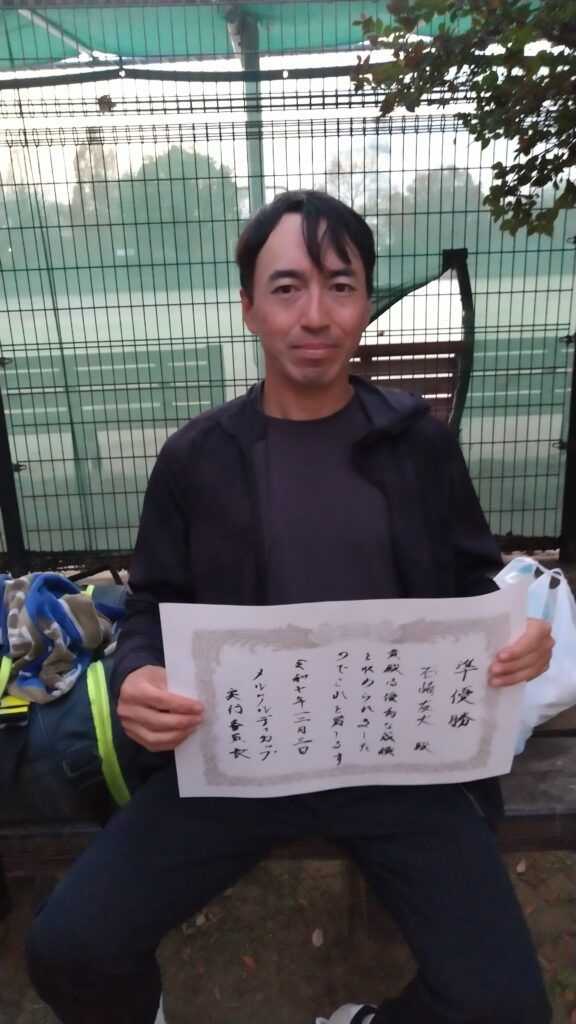 準優勝
石崎友大 殿
貴殿は優秀な成績
を收められました
のでこれを賞します
令和七年十二月三日
メルクルディカップ
実行委員長